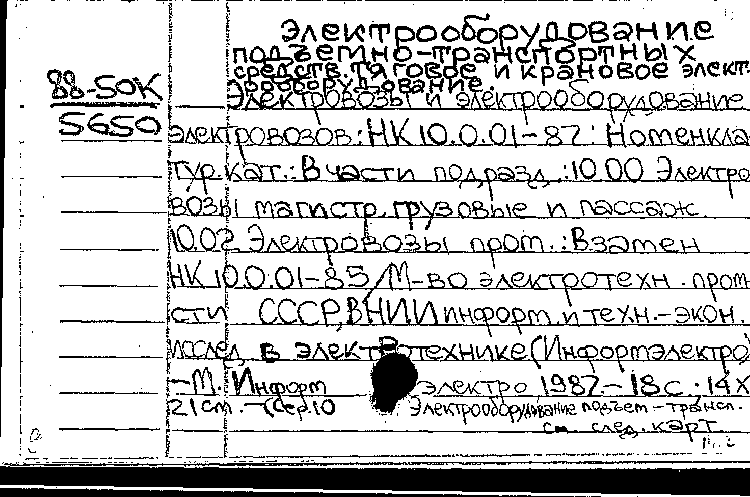 Электрооборудование
подъемно-транспортных
средств. тяговое и крановое элект
рооборудование.
88-50К
5650
Электровозы и электрооборудование
электровозов: НК 10.0.01-87: Номенкла
тур. кат.: В части подразд.: 10 00 Электро
возы магистр. грузовые и пассаж.
10.02 Электровозы пром.: Взамен
НК 10.0.01-85/М-во электротехн. пром
сти СССР, ВНИИ информ. и техн.-экон.
исслед. в электротехнике (Информэлектро)
-М. Информ электро 1987.-18 с.; 14 X
21 cm. -(Сер. 10 Электрооборудование подъем-трансп.
см. след. карт